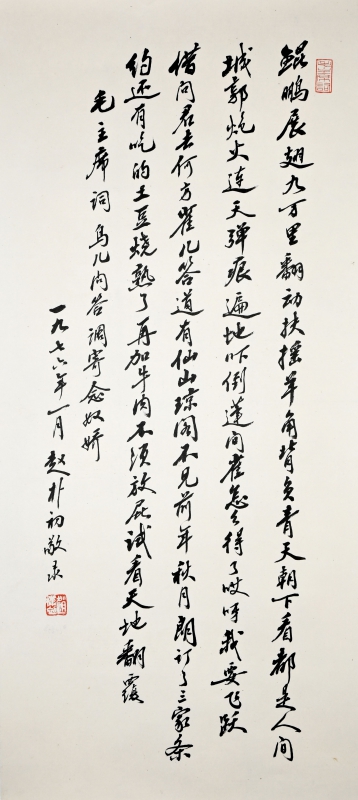 鲲鹏展翅九万里翻动扶摇羊角背负青天朝下看都是人间
城郭炮火连天弹痕遍地吓倒蓬间雀怎么得了哎呀我要飞跃
借问君去何方雀儿答道有仙山琼阁不见前年秋月朗订了三家条
约还有吃的土豆烧熟了再加牛肉不须放屁试看天地翻覆
毛主席词鸟儿问答调寄念奴娇
一九七六年一月赵朴初敬录